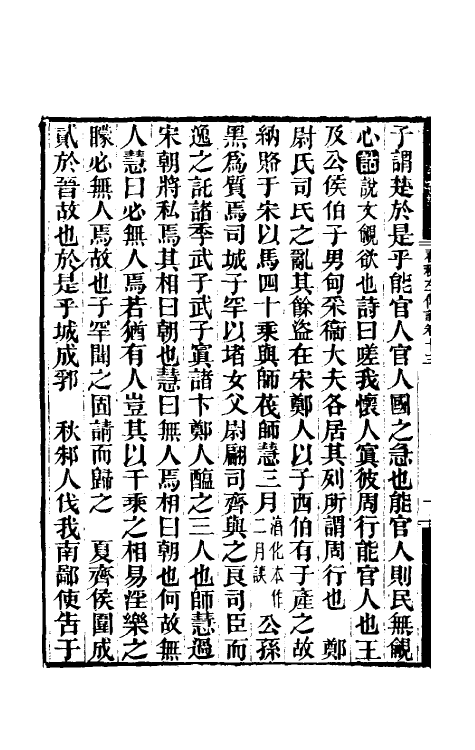 子謂楚於是乎能官人官人國之急也能官人則民無覦
心詁說文覦欲也詩曰嗟我懷人寘彼周行能官人也王
及公侯伯子男甸采衞大夫各居其列所謂周行也　鄭
尉氏司氏之亂其餘盜在宋鄭人以子西伯有子產之故
納賂于宋以馬四十乘與師茷師慧三月淳化本作二月誤公孫
黑爲質焉司城子罕以堵女父尉翩司齊與之良司臣而
逸之託諸季武子武子寘諸卞鄭人醢之三人也師慧過
宋朝將私焉其相曰朝也慧曰無人焉相曰朝也何故無
人慧曰必無人焉若猶有人豈其以千乘之相易淫樂之
矇必無人焉故也子罕聞之固請而歸之　夏齊侯圍成
貳於晉故也於是乎城成郛　秋邾人伐我南鄙使告于